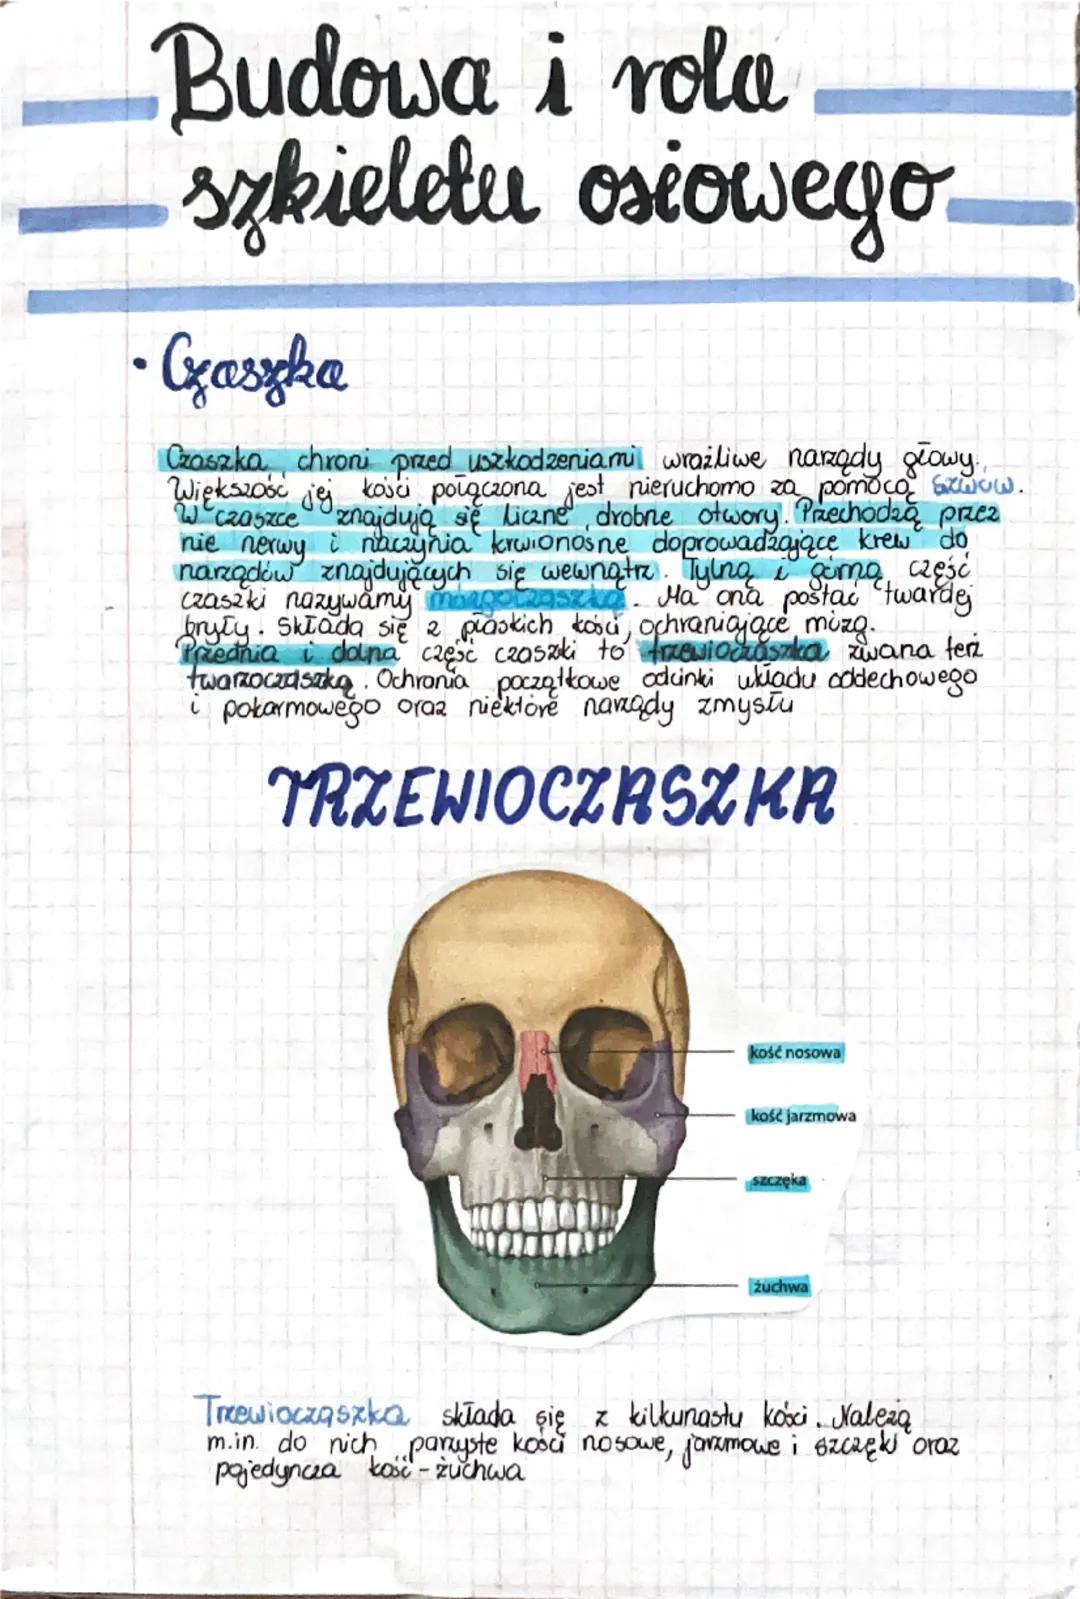 Budowa i rola
szkieletu osiowego
• Czaszka
Czaszka chroni przed uszkodzeniami wrażliwe narządy głowy.
Większość jej kości połączona jest nieruchomo za pomocą szwów.
W czaszce znajdują się liczne drobne otwory. Przechodzą przez
nie nerwy i naczynia krwionośne doprowadzające krew do
narządów znajdujących się wewnątrz. Tylną i górną część
czaszki nazywamy mózgoczaszką. Ma ona postać twardej
bryły. Składa się z płaskich kości, ochraniające mózg.
Przednia i dolna część czaszki to trzewioczaszka zwana też
twarzoczaszką. Ochrania początkowe odcinki układu oddechowego
i pokarmowego oraz niektóre narządy zmysłu
TRZEWIOCZASZKA
kość nosowa
kość jarzmowa
szczęka
żuchwa
Trzewioczaszka składa się z kilkunastu kości. Należą
m.in. do nich parzyste kości nosowe, jarzmowe i szczęki oraz
pojedyncza kość - żuchwa